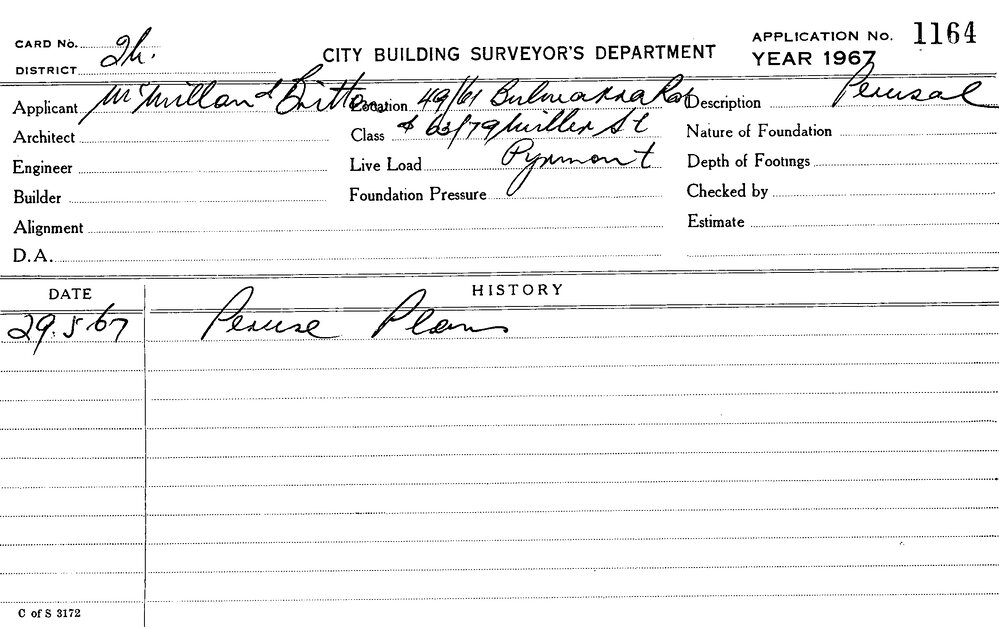 CARD No. 2h.
CITY BUILDING SURVEYOR'S DEPARTMENT
APPLICATION No. 1164
DISTRICT
YEAR 1967
Applicant McMillan & Britton
Location 49/61 Bulwarra Rd
Description Perusal
Architect
Class & 63/79 Miller St
Nature of Foundation
Engineer
Live Load Pyrmont
Depth of Footings
Builder
Foundation Pressure
Checked by
Alignment
Estimate
D.A.
DATE
HISTORY
29.5.67 Peruse Plans
C of S 3172